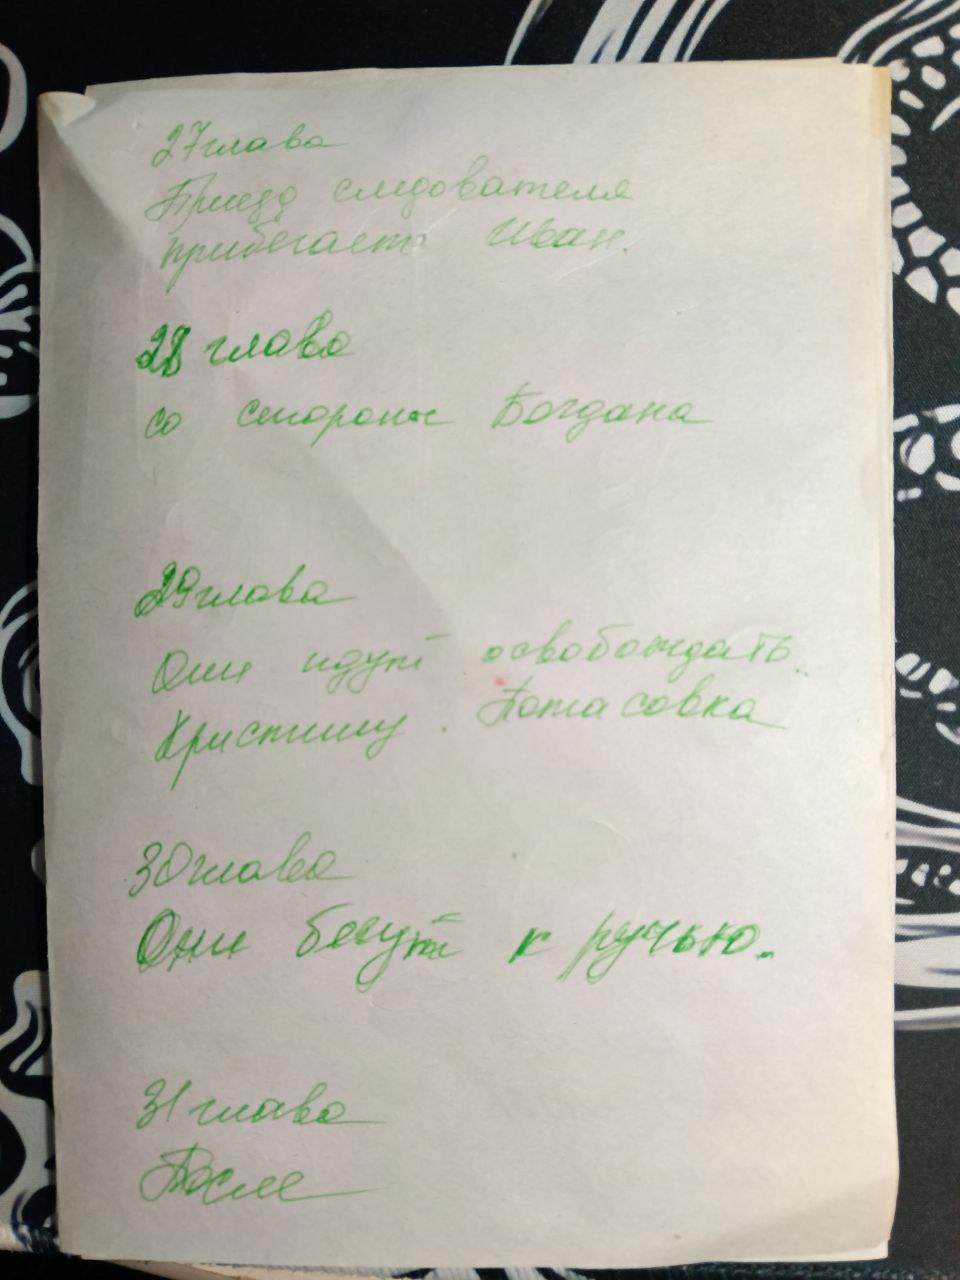 27 глава
Приезд следователя
прибегает Иван.
28 глава
со стороны Богдана
29 глава
Они идут освобождать
Христину. Потасовка
30 глава
Они бегут к ручью.
31 глава
После